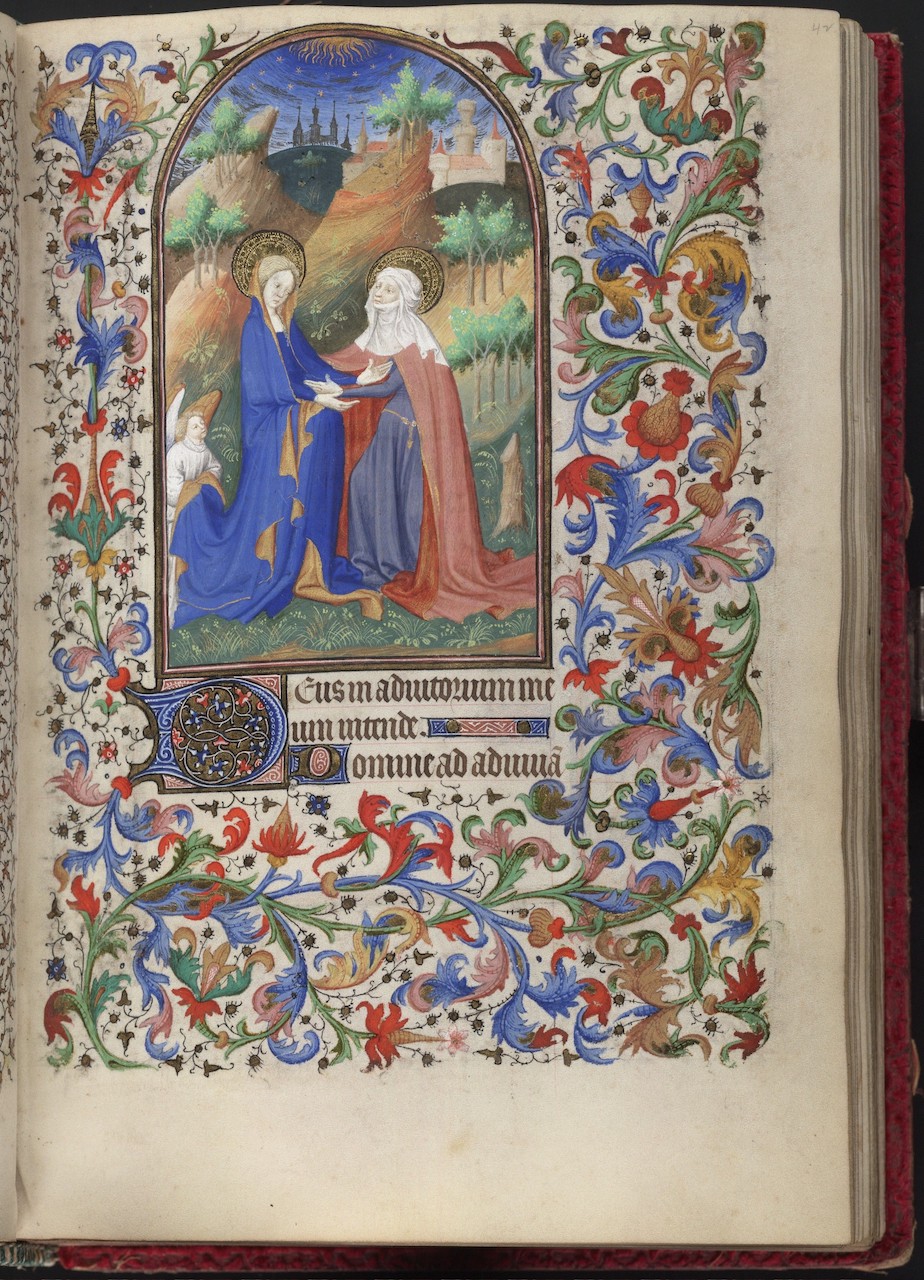 42
Deus in adiutorium me
um intende.
Domine ad adiuuā